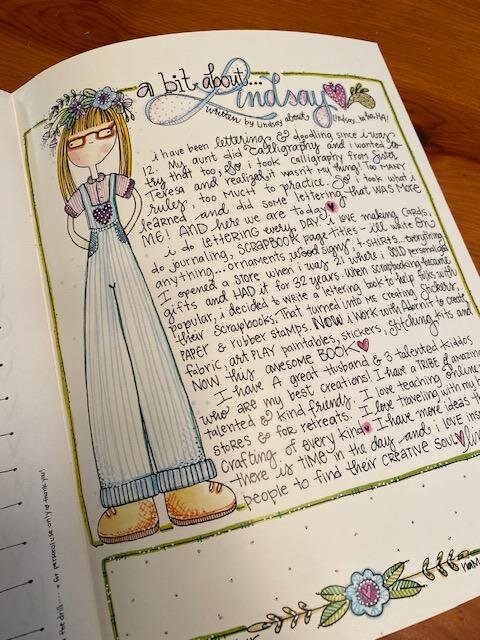 a bit about...
Lindsay
written by Lindsay about Lindsay
i have been lettering & doodling since i was
12. My aunt did calligraphy and i wanted to
try that too, so i took calligraphy from Sister
Teresa and realized it wasn't my thing! Too MANY
rules, too MUCH to practice. So i took what i
learned and did some lettering that was MORE
ME! AND here we are today
i do lettering every DAY. I LOVE making CARDS,
do journaling, SCRAPBOOK page titles - ill write ON
anything... ornaments, wood signs, t-SHIRTS...everything
I opened a STORE when i was 21 where i SOLD personalized
gifts and HAD it for 32 years. When scrapbooking became
popular, i decided to write a lettering book to help folks with
their scrapbooks. That turned into ME creating Stickers,
PAPER & rubber stamps. NOW i work with to create
fabric, art PLAY paintables, stickers, stitching kits and
NOW this awesome BOOK
I have A great Husband & 3 talented kiddos
who are my best creations! I have a TRIBE of amazing
talented & kind friends. I love teaching online
stores & for retreats. I love traveling with my
Crafting of every kind I have more ideas
there is TIME in the day and i love
people to find their creative soul
the drill.... for personal use only thank you!